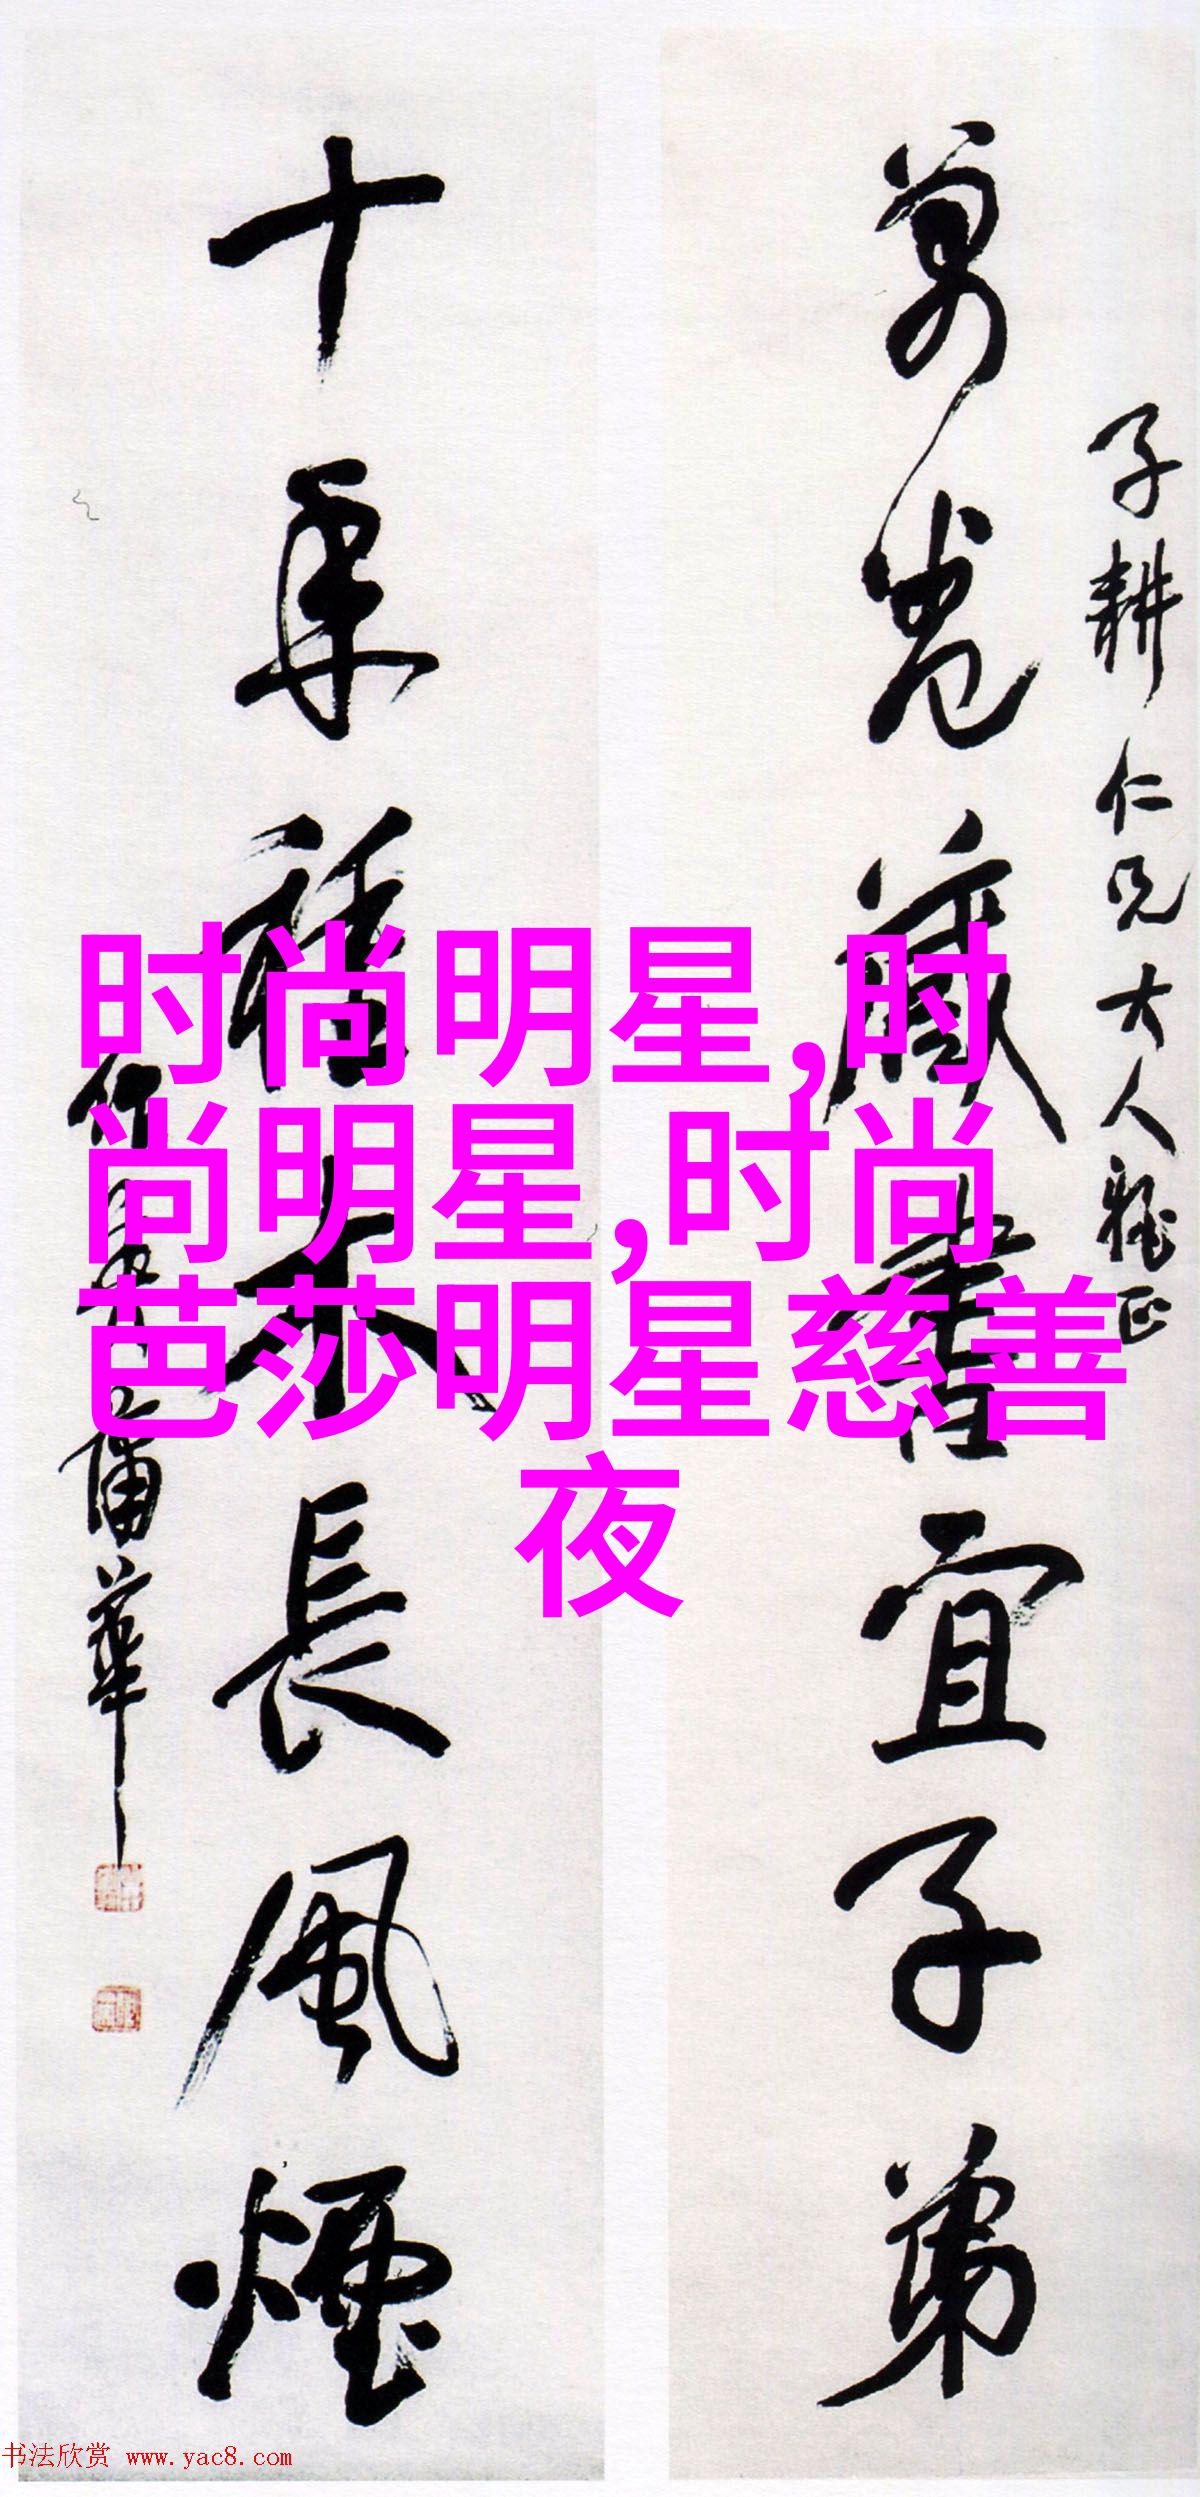 子耕仁兄大人雅正
萬卷藏書宜子弟
十年種木長風煙
蒲華
时尚明星,时
尚明星,时尚
芭莎明星慈善
夜
书法欣赏 www.yac8.com